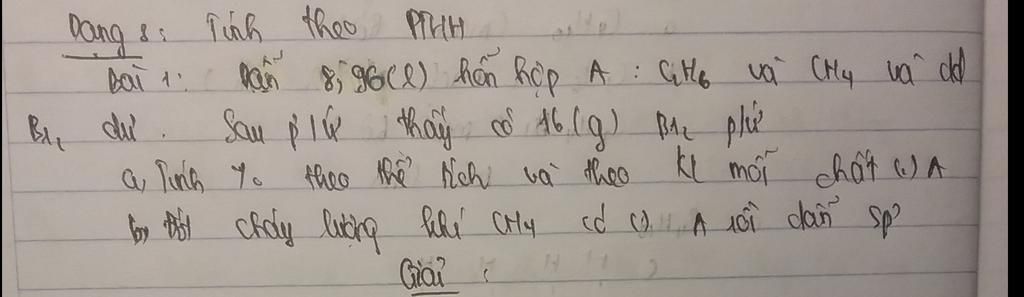 Dạng 8: Tính theo PTHH
Bài 1: Dẫn 8,96(l) hỗn hợp A: C4H6 và CH4 và dd
Br2 dư. Sau p/ứ thấy có 16(g) Br2 p/ứ
a, Tính % theo thể tích và theo kl mỗi chất (.) A
b, Đốt cháy lượng khí CH4 có (.) A rồi dẫn sp'
Giải: